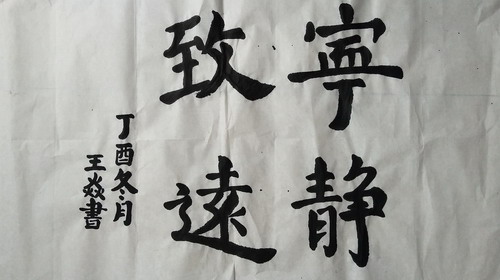 寧静
致遠
丁酉冬月
王焱書